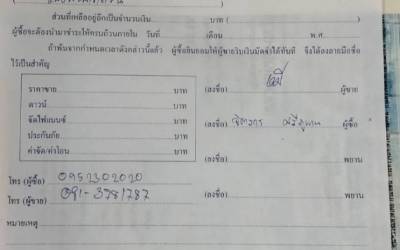 ส่วนที่เหลืออยู่อีกเป็นจำนวนเงิน บาท (
ผู้ซื้อจะต้องนำมาชำระให้ครบถ้วนภายใน วันที่ เดือน พ.ศ.
ถ้าพ้นจากกำหนดเวลาดังกล่าวนี้แล้ว ผู้ซื้อยินยอมให้ผู้ขายริบเงินมัดจำได้ทันที จึงได้ลงลายมือชื่อ
ไว้เป็นสำคัญ
ราคาขาย บาท
(ลงชื่อ) ผู้ขาย
ดาวน์ บาท
จัดไฟแนนซ์ บาท
(ลงชื่อ) ผู้ซื้อ
ประกันภัย บาท
ค่าจัด/ค่าโอน บาท
(ลงชื่อ) พยาน
โทร (ผู้ซื้อ) 0952302020
โทร (ผู้ขาย) 091-3781787 (ลงชื่อ) พยาน
หมายเหตุ